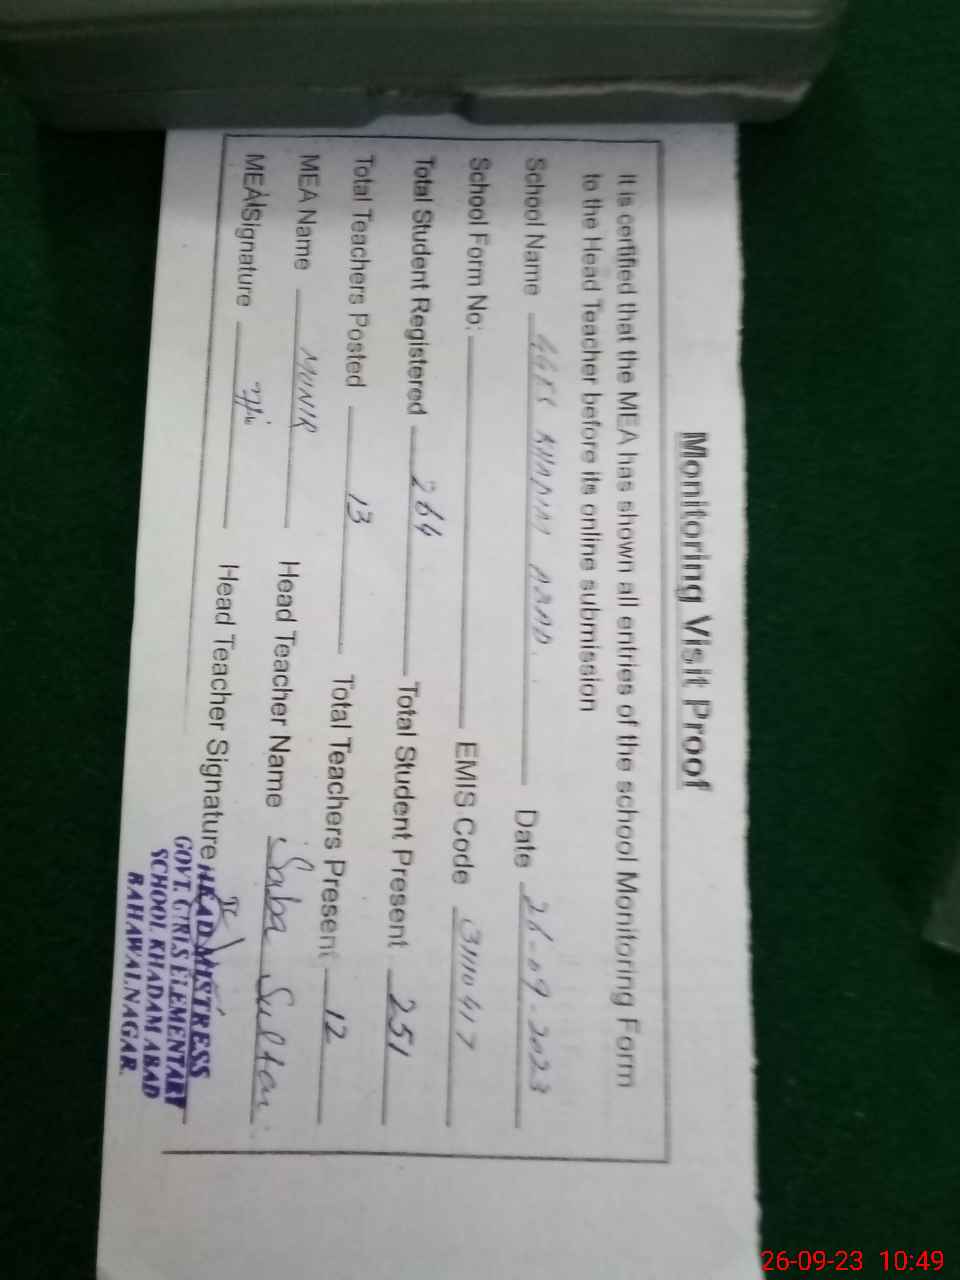 Monitoring Visit Proof
It is certified that the MEA has shown all entries of the school Monitoring Form
to the Head Teacher before its online submission
School Name GGES KHADIM ABAD. Date 26-09-2023
School Form No: EMIS Code 31110417
Total Student Registered 264 Total Student Present 251
Total Teachers Posted 13 Total Teachers Present 12
MEA Name MUNIR Head Teacher Name Saba Sultan
MEA Signature Head Teacher Signature
HEAD MISTRESS
GOVT. GIRLS ELEMENTARY
SCHOOL KHADAM ABAD
BAHAWALNAGAR.
26-09-23 10:49